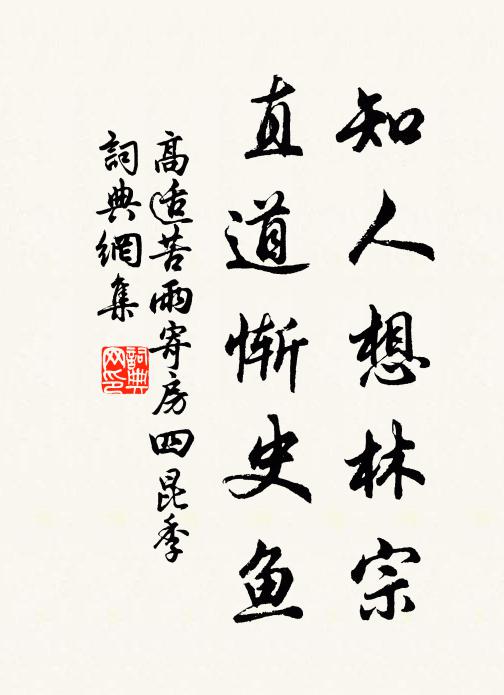 知人想林宗
直道惭史鱼
高适苦雨寄房四昆季
詞典網集
詞典网印